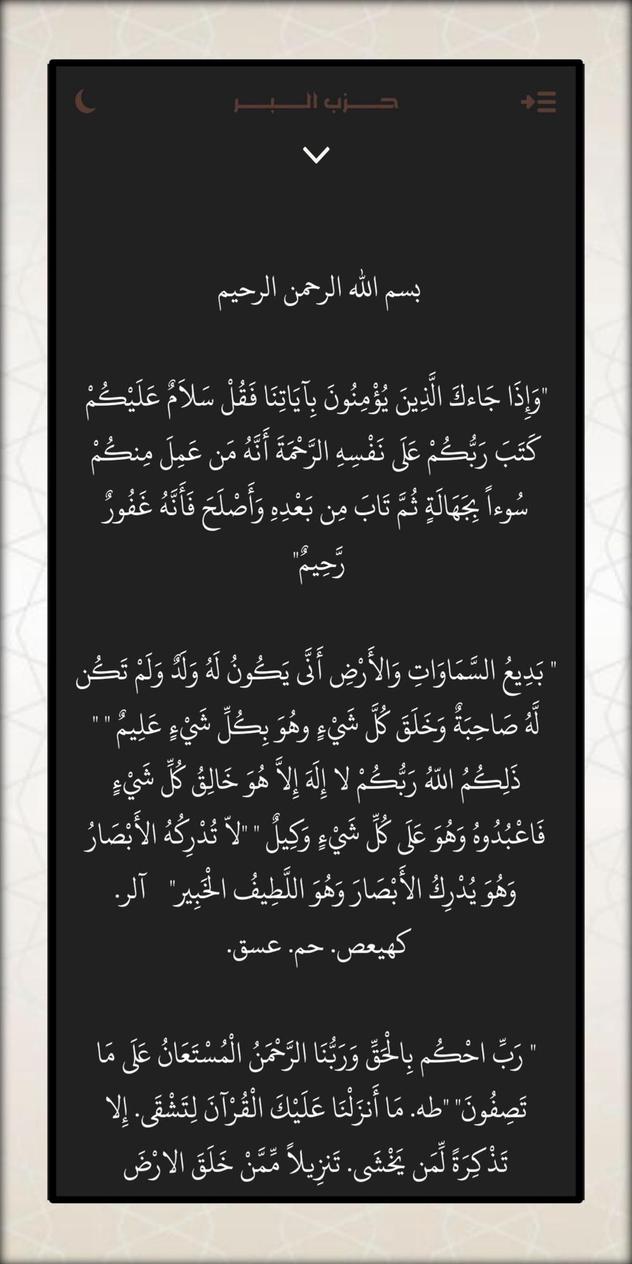 حزب البر
بسم الله الرحمن الرحيم
"وَإِذَا جَاءكَ الَّذِينَ يُؤْمِنُونَ بِآيَاتِنَا فَقُلْ سَلاَمٌ عَلَيْكُمْ
كَتَبَ رَبُّكُمْ عَلَى نَفْسِهِ الرَّحْمَةَ أَنَّهُ مَن عَمِلَ مِنكُمْ
سُوءاً بِجَهَالَةٍ ثُمَّ تَابَ مِن بَعْدِهِ وَأَصْلَحَ فَأَنَّهُ غَفُورٌ
رَّحِيمٌ"
" بَدِيعُ السَّمَاوَاتِ وَالأَرْضِ أَنَّى يَكُونُ لَهُ وَلَدٌ وَلَمْ تَكُن
لَّهُ صَاحِبَةٌ وَخَلَقَ كُلَّ شَيْءٍ وهُوَ بِكُلِّ شَيْءٍ عَلِيمٌ " "
ذَلِكُمُ اللّهُ رَبُّكُمْ لا إِلَهَ إِلاَّ هُوَ خَالِقُ كُلِّ شَيْءٍ
فَاعْبُدُوهُ وَهُوَ عَلَى كُلِّ شَيْءٍ وَكِيلٌ " "لاّ تُدْرِكُهُ الأَبْصَارُ
وَهُوَ يُدْرِكُ الأَبْصَارَ وَهُوَ اللَّطِيفُ الْخَبِير" آلر.
كهيعص. حم. عسق.
" رَبِّ احْكُم بِالْحَقِّ وَرَبُّنَا الرَّحْمَنُ الْمُسْتَعَانُ عَلَى مَا
تَصِفُونَ" "طه. مَا أَنزَلْنَا عَلَيْكَ الْقُرْآنَ لِتَشْقَى. إِلا
تَذْكِرَةً لِّمَن يَخْشَى. تَنزِيلاً مِّمَّنْ خَلَقَ الارْضَ